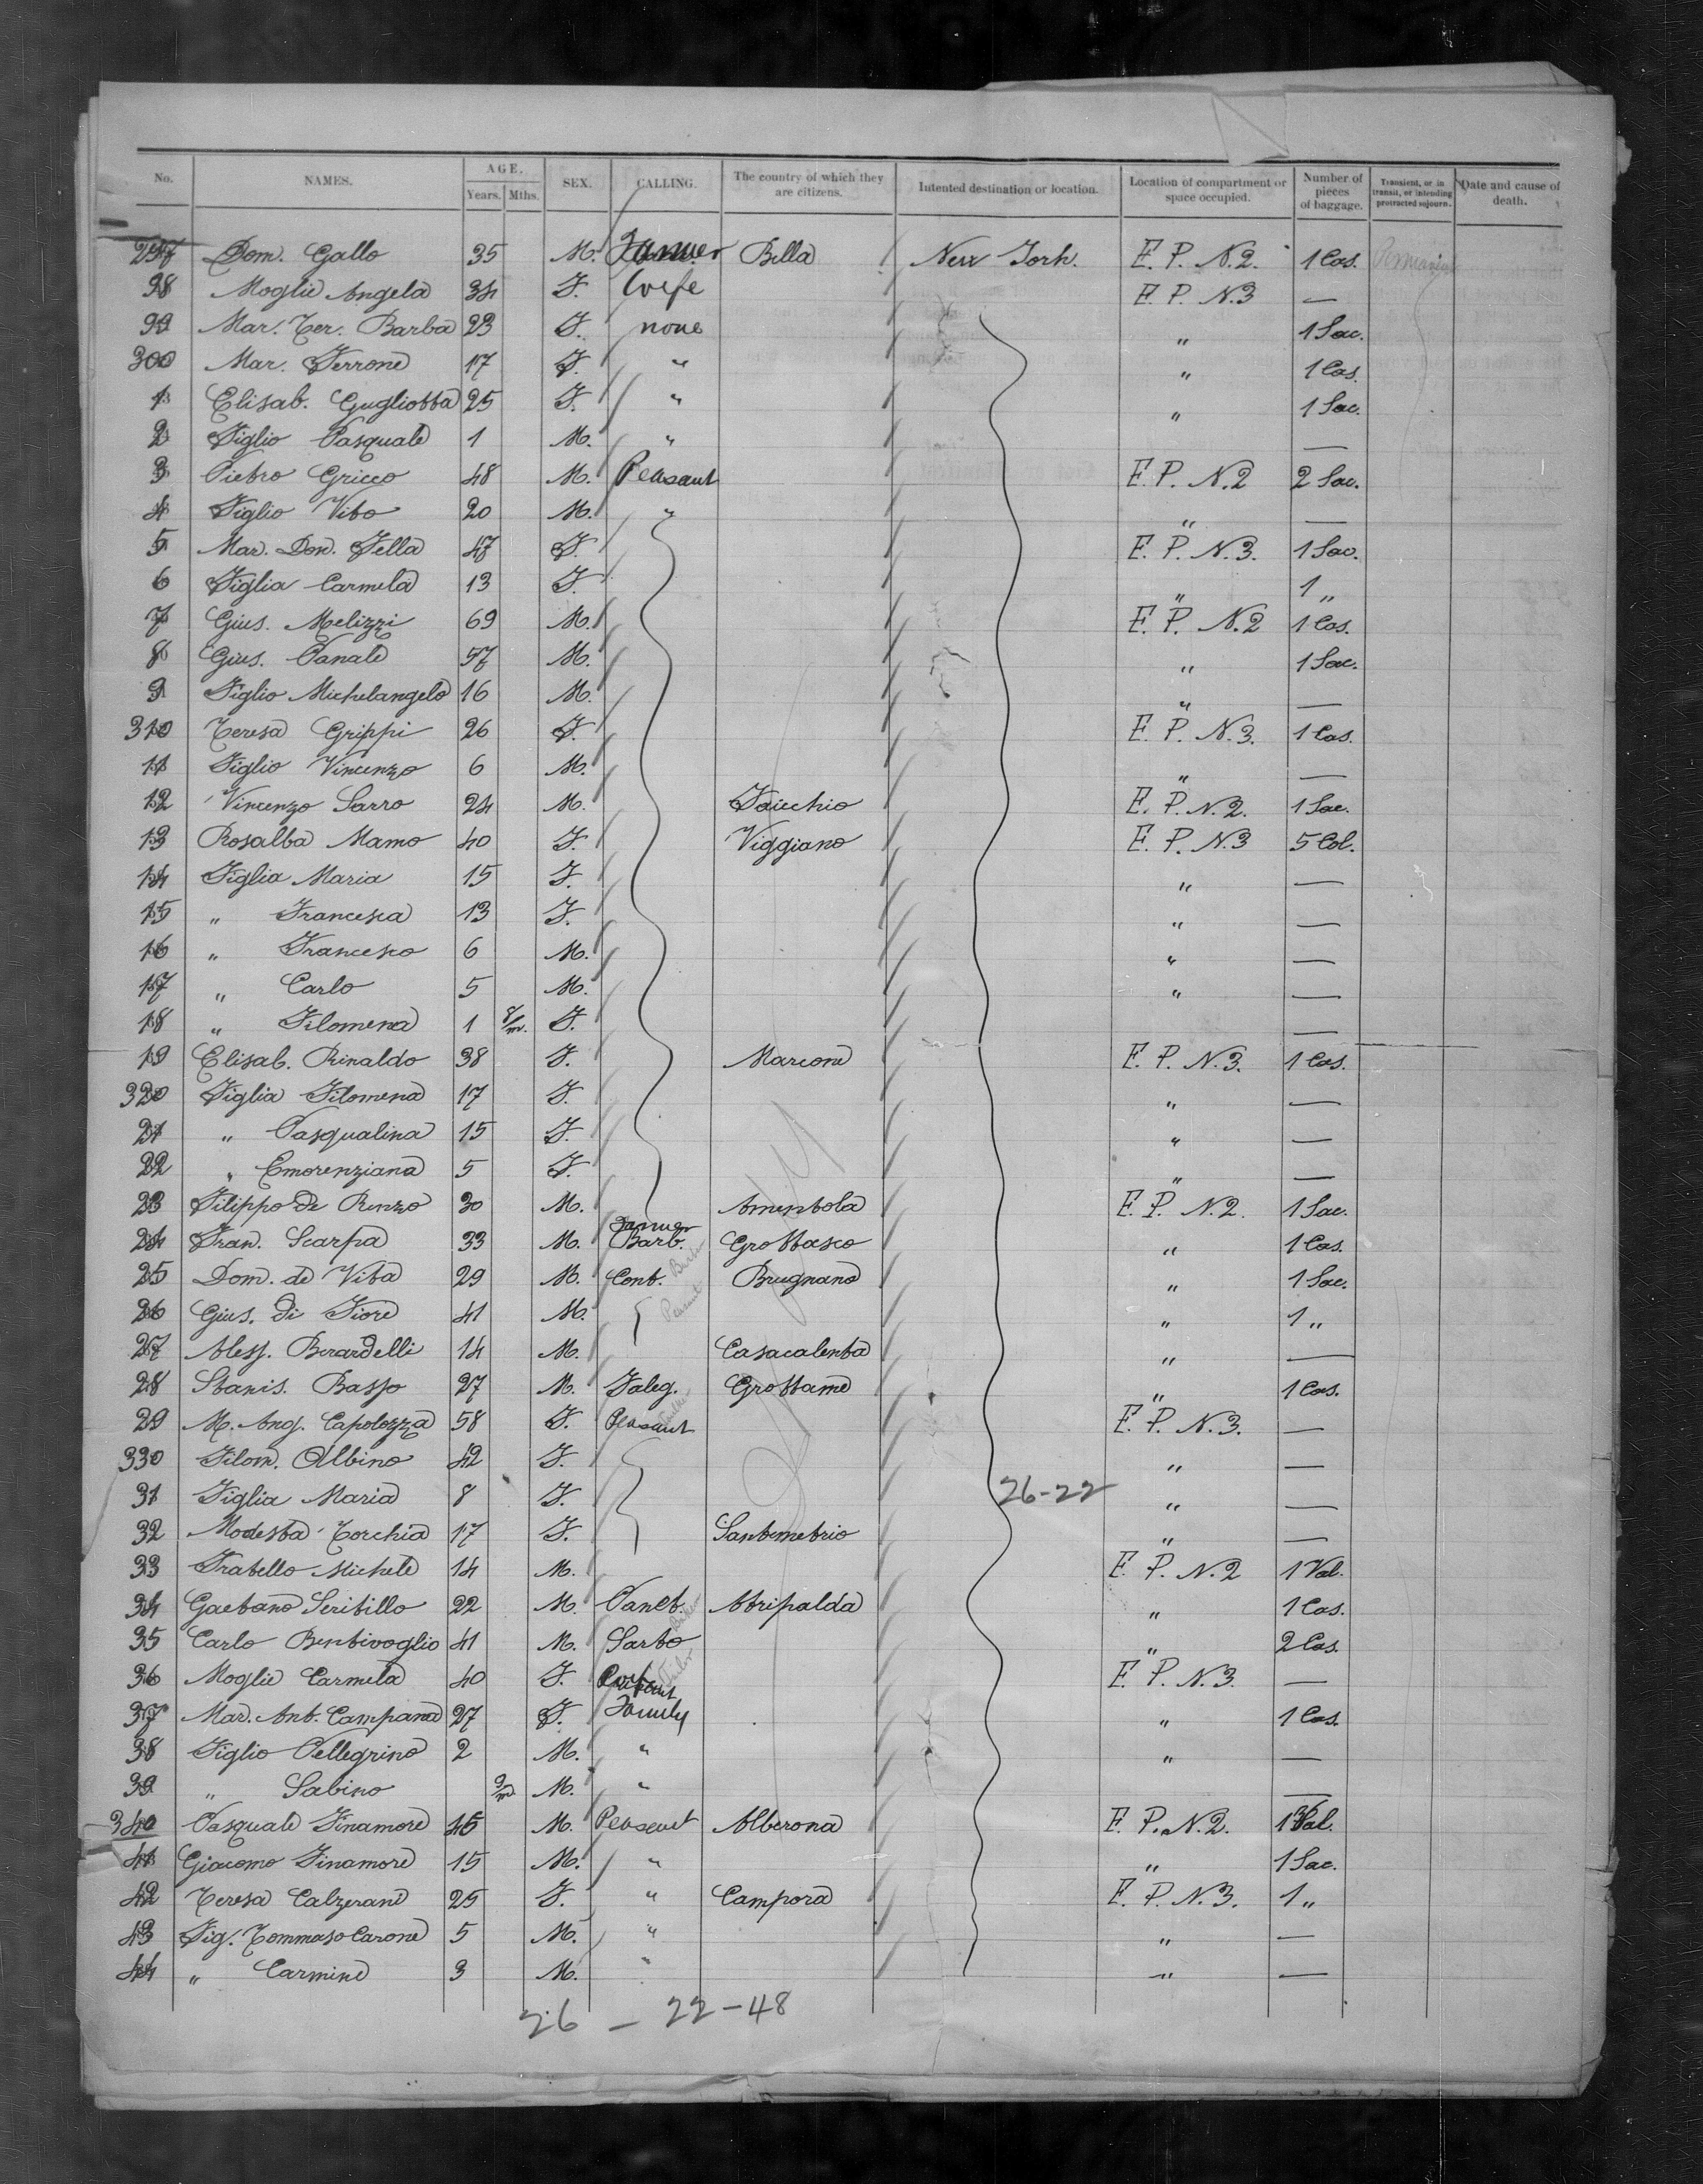 No. NAMES. AGE. Years. Mths. SEX. CALLING. The country of which they are citizens. Intented destination or location. Location of compartment or space occupied. Number of pieces of baggage. Transient, or in transit, or intending protracted sojourn. Date and cause of death.
297 Dom. Gallo 35 M. Farmer Bella New York. E. P. N.2. 1 Cas.
98 Moglie Angela 34 F. Wife E. P. N.3 —
99 Mar. Ter. Barba 23 F. none " 1 Sac.
300 Mar. Ferrone 17 F. " " 1 Cas.
1 Elisab. Gugliotta 25 F. " " 1 Sac.
2 Figlio Pasquale 1 M. " —
3 Pietro Gricco 48 M. Peasant E. P. N.2 2 Sac.
4 Figlio Vito 20 M. " " —
5 Mar. Don. Fella 47 F. E. P. N.3. 1 Sac.
6 Figlia Carmela 13 F. " 1 "
7 Gius. Melizzi 69 M. E. P. N.2 1 Cas.
8 Gius. Panale 57 M. " 1 Sac.
9 Figlio Michelangelo 16 M. " —
310 Teresa Grippi 26 F. E. P. N.3. 1 Cas.
11 Figlio Vincenzo 6 M. " —
12 Vincenzo Sarro 24 M. Faicchio E. P. N.2. 1 Sac.
13 Rosalba Mamo 40 F. Viggiano E. P. N.3 5 Col.
14 Figlia Maria 15 F. " —
15 " Francesca 13 F. " —
16 " Francesco 6 M. " —
17 " Carlo 5 M. " —
18 " Filomena 1 8/m. F. —
19 Elisab. Rinaldo 38 F. Marcone E. P. N.3. 1 Cas.
320 Figlia Filomena 17 F. " —
21 " Pasqualina 15 F. " —
22 " Emorenziana 5 F. " —
23 Filippo de Renzo 30 M. Amentola E. P. N.2. 1 Sac.
24 Fran. Scarpa 33 M. Farmer Barb. Barber Grottasco " 1 Cas.
25 Dom. de Vita 29 M. Cont. Peasant Brugnano " 1 Sac.
26 Gius. di Fiore 41 M. " 1 "
27 Aless. Berardelli 14 M. Casacalenta " —
28 Stanis. Basso 27 M. Faleg. Grottame " 1 Cas.
29 M. Ang. Capolozza 58 F. Peasant E. P. N.3. —
330 Filom. Albino 42 F. " —
31 Figlia Maria 8 F. 26-22 " —
32 Modesta Torchia 17 F. Santemetrio " —
33 Fratello Michele 14 M. E. P. N.2 1 Val.
34 Gaetano Seritillo 22 M. Panet. Baker Atripalda " 1 Cas.
35 Carlo Bentivoglio 41 M. Sarto Tailor " 2 Cas.
36 Moglie Carmela 40 F. E. P. N.3. —
37 Mar. Ant. Campana 27 F. Family " 1 Cas.
38 Figlio Pellegrino 2 M. " " —
39 " Sabino 9/m M. " —
340 Pasquale Finamore 45 M. Peasant Alberona E. P. N.2. 1 Val.
41 Giacomo Finamore 15 M. " " 1 Sac.
42 Teresa Calzerane 25 F. " Campora E. P. N.3. 1 "
43 Fig. Tommaso Carone 5 M. " " —
44 " Carmine 3 M. " " —
26 — 22 — 48